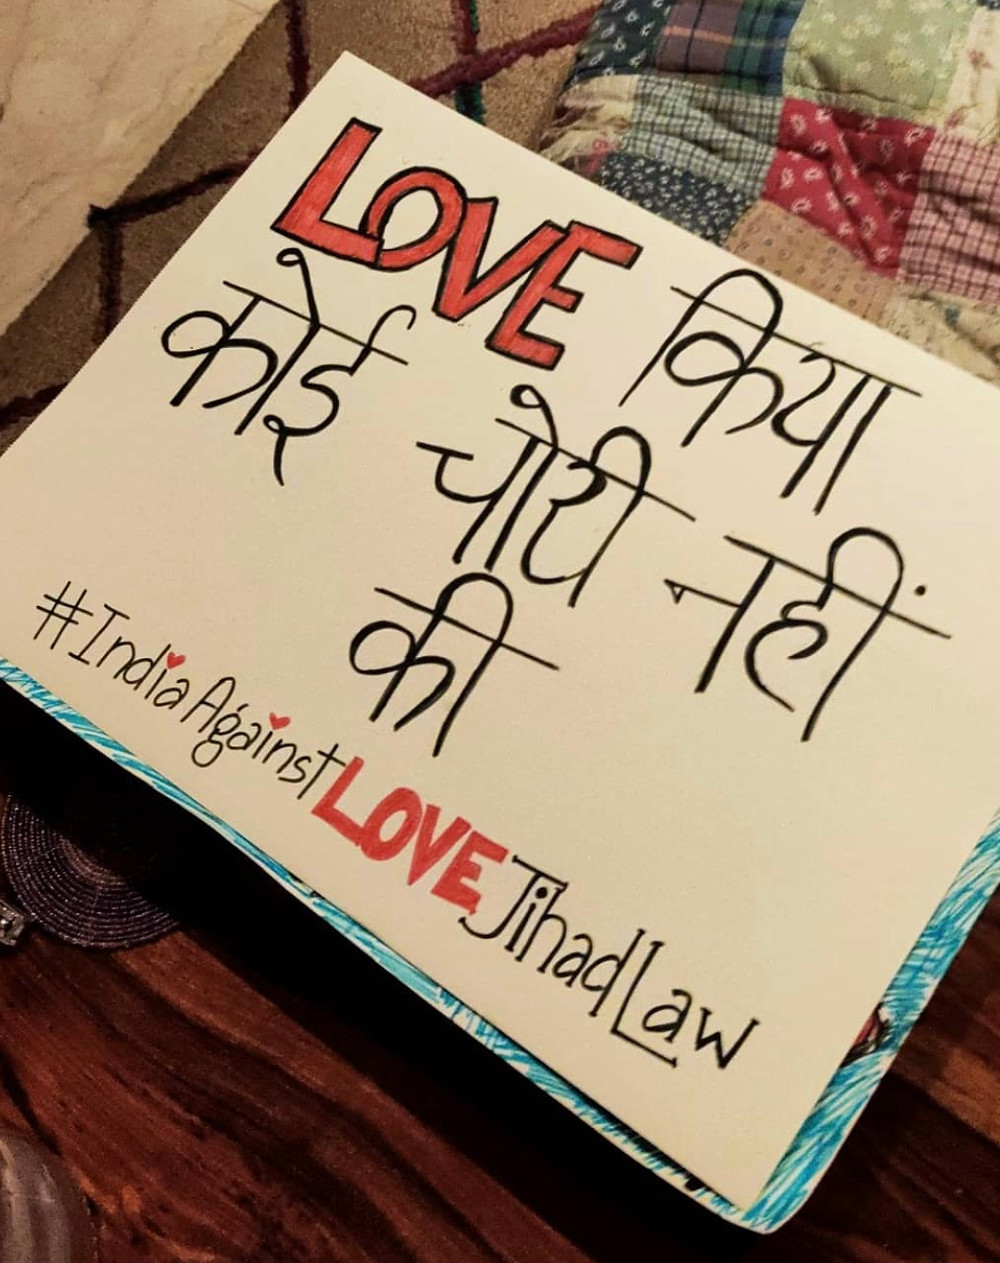 LOVE किया
कोई चोरी नहीं
की
#IndiaAgainstLOVEJihadLaw